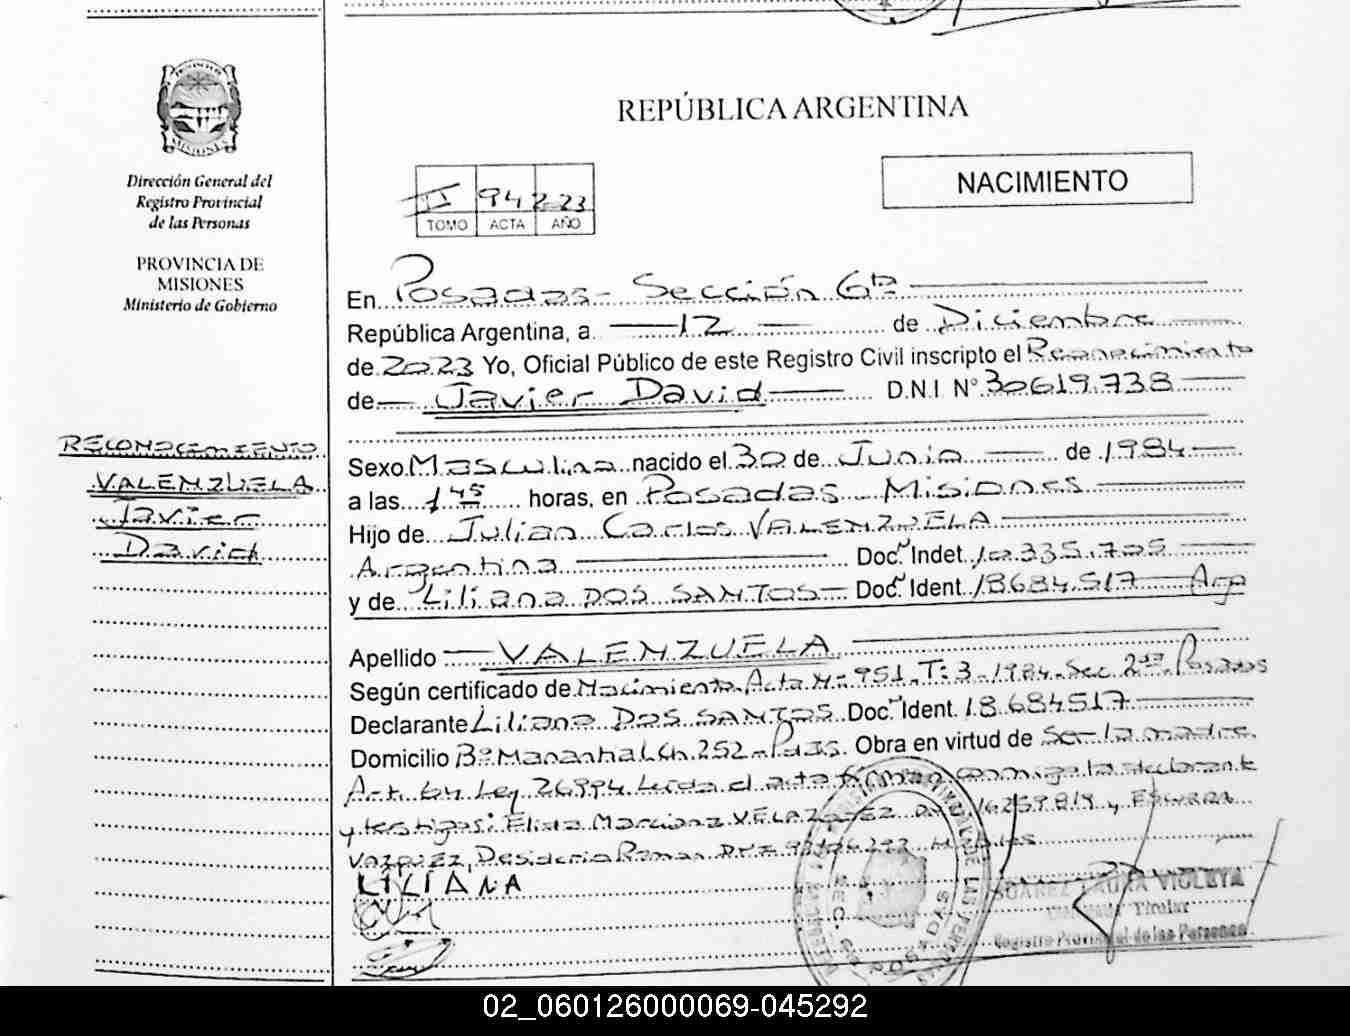 REPÚBLICA ARGENTINA
Dirección General del
Registro Provincial
de las Personas
PROVINCIA DE
MISIONES
Ministerio de Gobierno
II 94 2023
TOMO ACTA AÑO
NACIMIENTO
RECONOCIMIENTO
VALENZUELA
Javier
David
En Posadas - Sección 6ta
República Argentina, a 12 de Diciembre
de 2023 Yo, Oficial Público de este Registro Civil inscripto el Reconocimiento
de Javier David D.N.I. N° 30619.738
Sexo Masculino nacido el 30 de Junio de 1984
a las 1 45 horas, en Posadas Misiones
Hijo de Julian Carlos VALENZUELA
Argentino Doc. Indet. 10.335.705
y de Liliana DOS SANTOS Doc. Ident. 18684.517 Arg
Apellido VALENZUELA
Según certificado de Nacimiento. Acta N- 951. T: 3 - 1984. Sec 2da. Posadas
Declarante Liliana DOS SANTOS Doc. Ident. 18.684517
Domicilio B° Ch. 252 - Pdas. Obra en virtud de ser la madre.
Art. 64 Ley 26994 Leída el acta firman conmigo la declarante
y testigos: Elida VELAZQUEZ 16259.819 y
VAZQUEZ, Desiderio Ramon
LILIANA
SUAREZ LAURA
Titular
Registro Provincial de las Personas
02_060126000069-045292